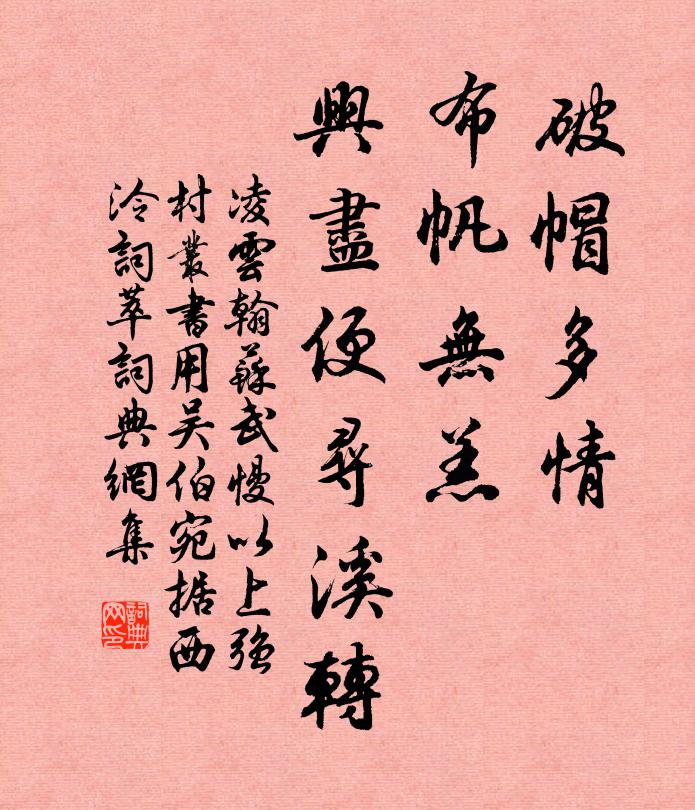 破帽多情
布帆無恙
興盡便尋溪轉
凌雲翰蘇武慢以上強
村叢書用吴伯宛据西
泠詞萃詞典網集
詞典網印